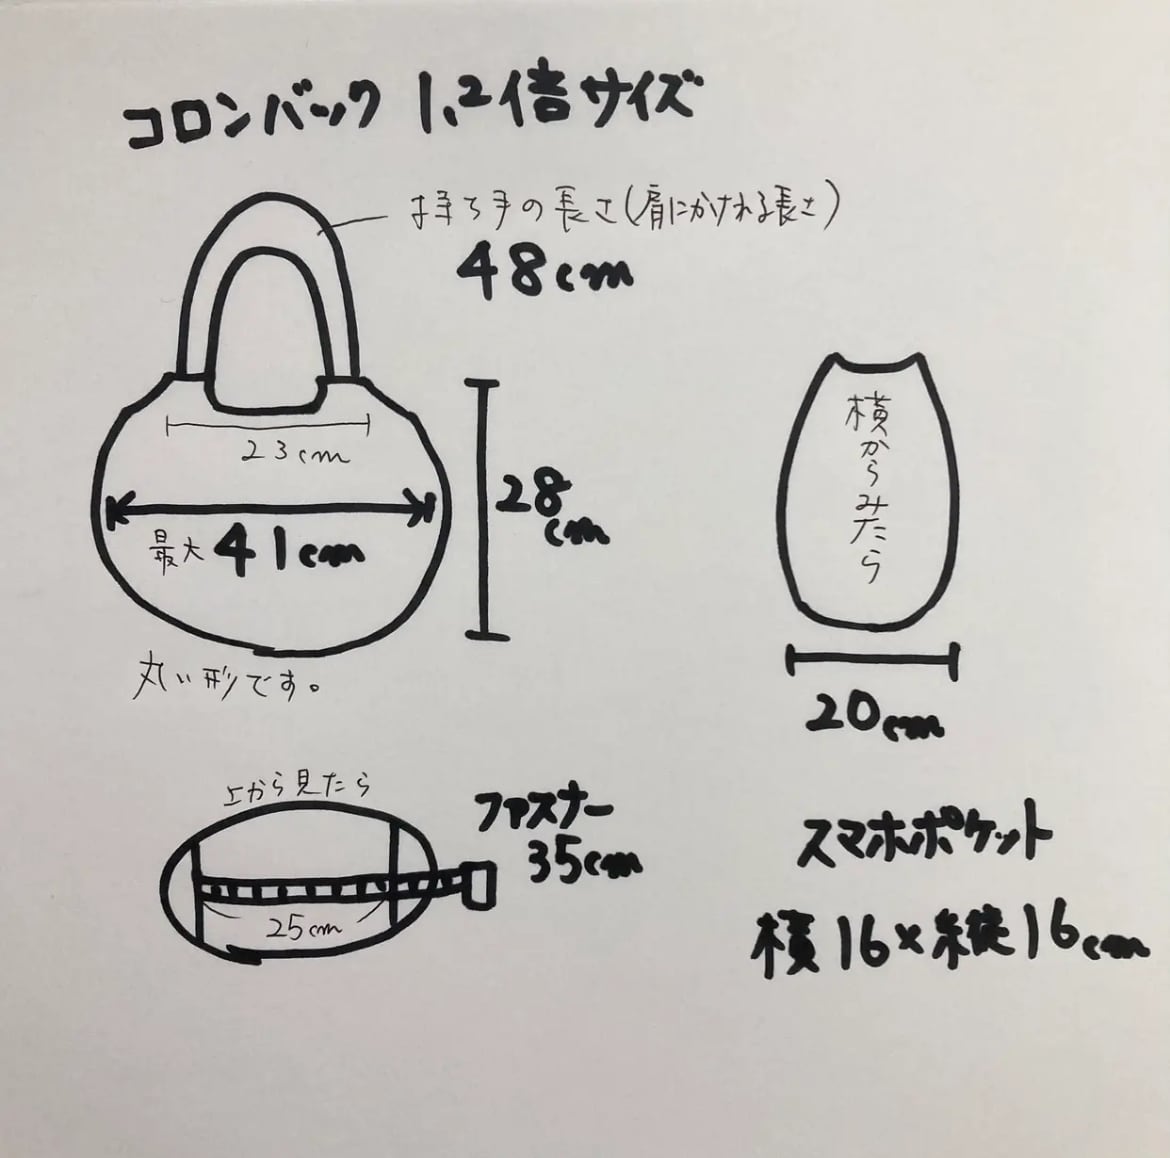 コロンバック 1.2倍サイズ
持ち手の長さ(肩にかけれる長さ)
48cm
23cm
最大 41cm
28
cm
丸い形です。
横からみたら
20cm
上から見たら
ファスナー
35cm
25cm
スマホポケット
横16×縦16cm